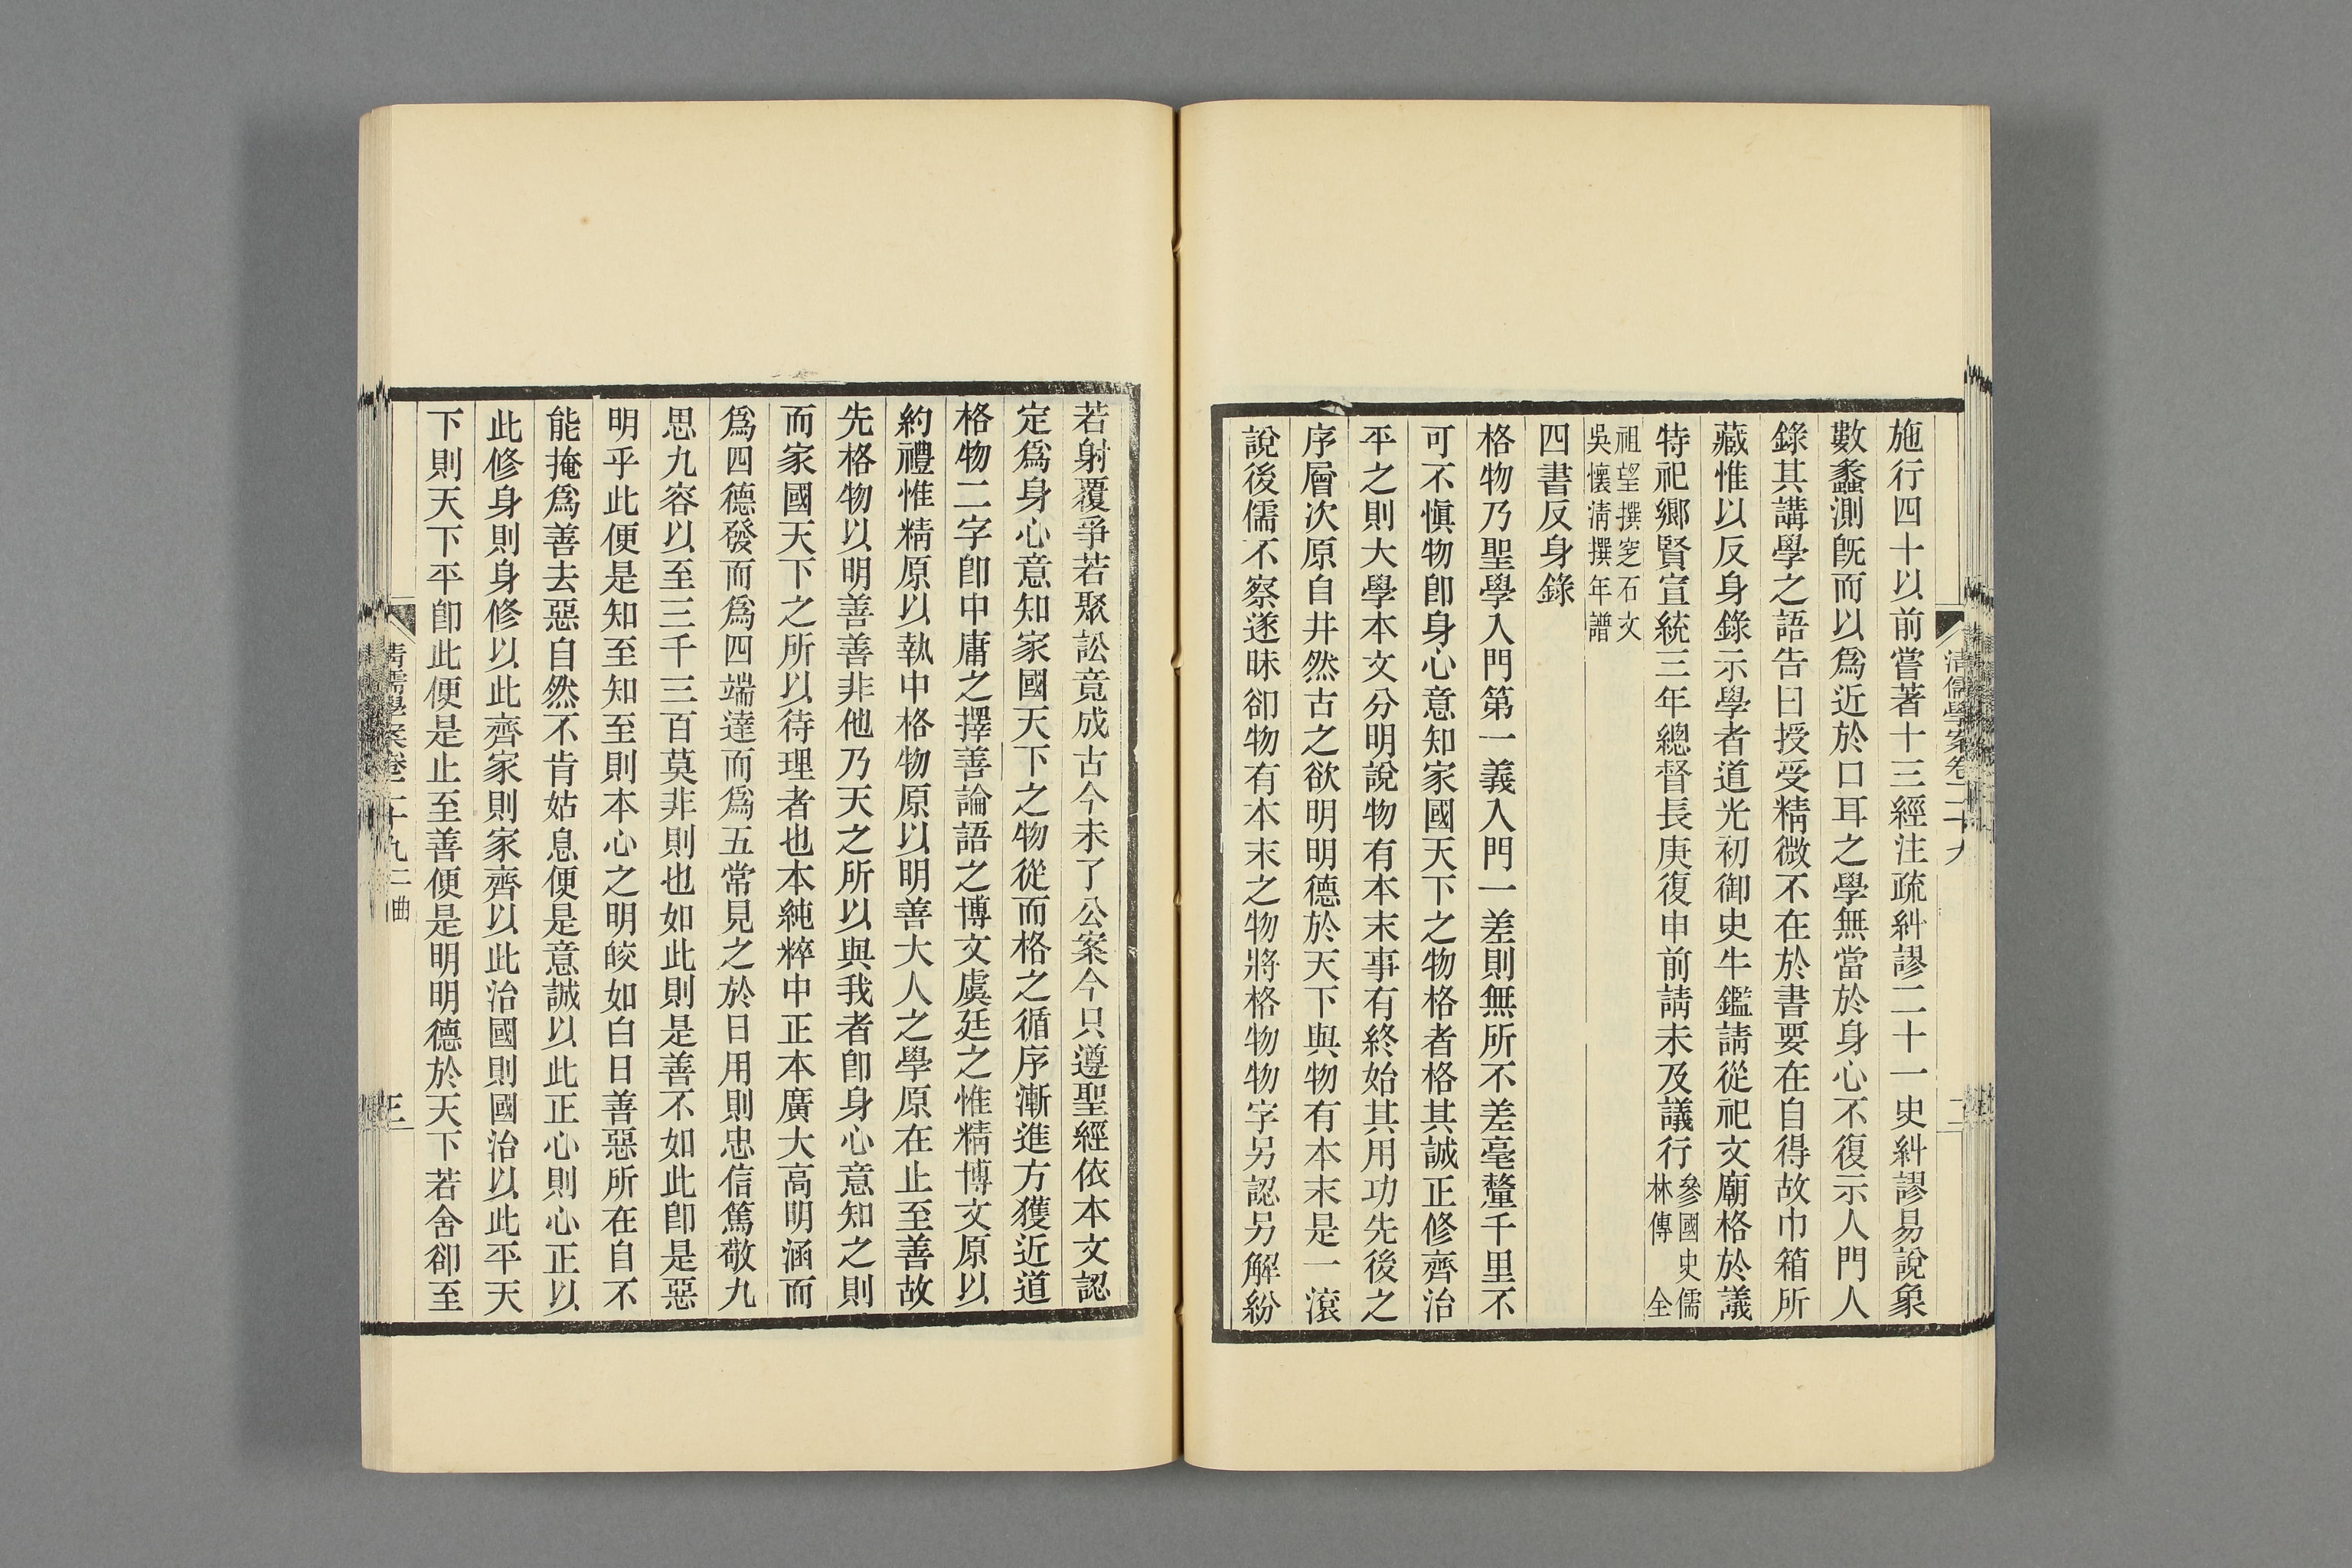 清儒學案卷二十九
二
施行四十以前嘗著十三經注疏糾謬二十一史糾謬易說象
數蠡測旣而以爲近於口耳之學無當於身心不復示人門人
錄其講學之語告曰授受精微不在於書要在自得故巾箱所
藏惟以反身錄示學者道光初御史牛鑑請從祀文廟格於議
特祀鄉賢宣統三年總督長庚復申前請未及議行參國史儒
林傳　全
祖望撰窆石文
吳懷淸撰年譜
四書反身錄
格物乃聖學入門第一義入門一差則無所不差毫釐千里不
可不愼物卽身心意知家國天下之物格者格其誠正修齊治
平之則大學本文分明說物有本末事有終始其用功先後之
序層次原自井然古之欲明明德於天下與物有本末是一滾
說後儒不察遂昧卻物有本末之物將格物物字另認另解紛
若射覆爭若聚訟竟成古今未了公案今只遵聖經依本文認
定爲身心意知家國天下之物從而格之循序漸進方獲近道
格物二字卽中庸之擇善論語之博文虞廷之惟精博文原以
約禮惟精原以執中格物原以明善大人之學原在止至善故
先格物以明善善非他乃天之所以與我者卽身心意知之則
而家國天下之所以待理者也本純粹中正本廣大高明涵而
爲四德發而爲四端達而爲五常見之於日用則忠信篤敬九
思九容以至三千三百莫非則也如此則是善不如此卽是惡
明乎此便是知至知至則本心之明皎如白日善惡所在自不
能掩爲善去惡自然不肯姑息便是意誠以此正心則心正以
此修身則身修以此齊家則家齊以此治國則國治以此平天
下則天下平卽此便是止至善便是明明德於天下若舍卻至
清儒學案卷二十九二曲
三